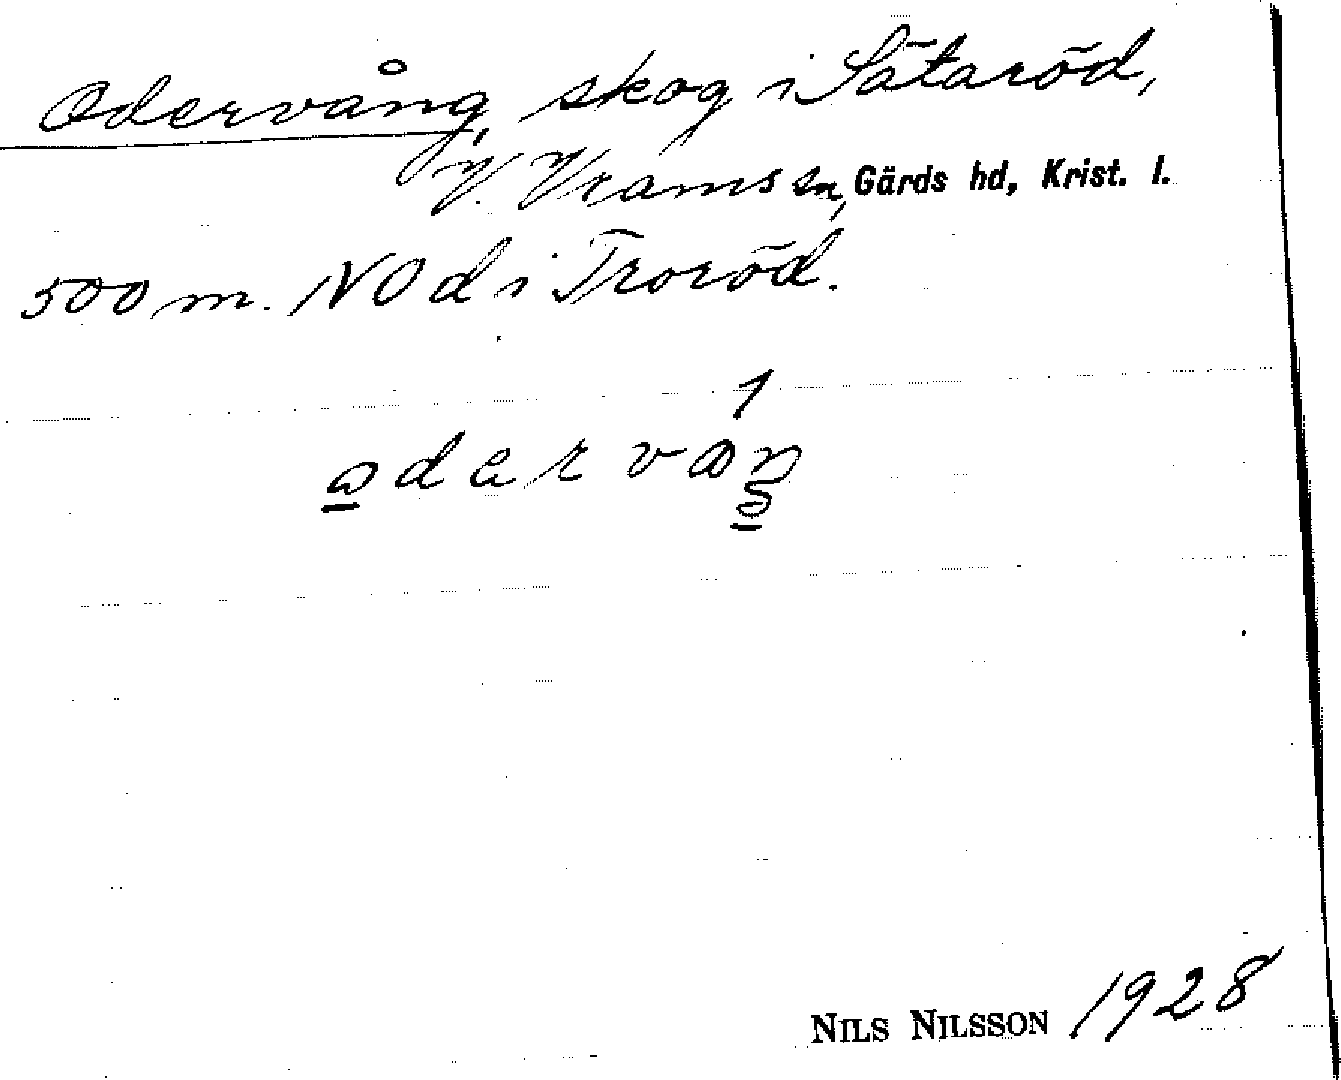 Odervång, skog i Sätaröd,
V. Vrams sn, Gärds hd, Krist. l.
500 m. NO d i Troröd.
1928
NILS NILSSON